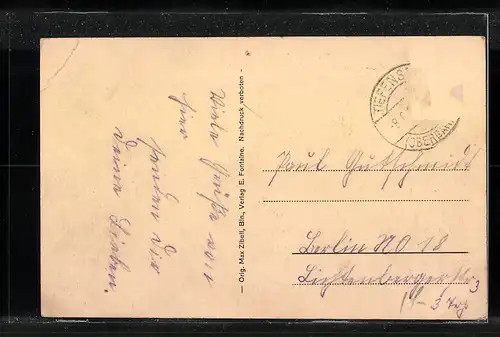 Viele Grüße von
hier
senden Dir
Deine Lieben.
— Orig. Max Zibell, Bln., Verlag E. Fontaine. Nachdruck verboten —
TIEFENS
-8.
(OBERBAR
Paul Gutschmidt
Berlin NO 18
Lichtenbergerstr 3
3 Trp